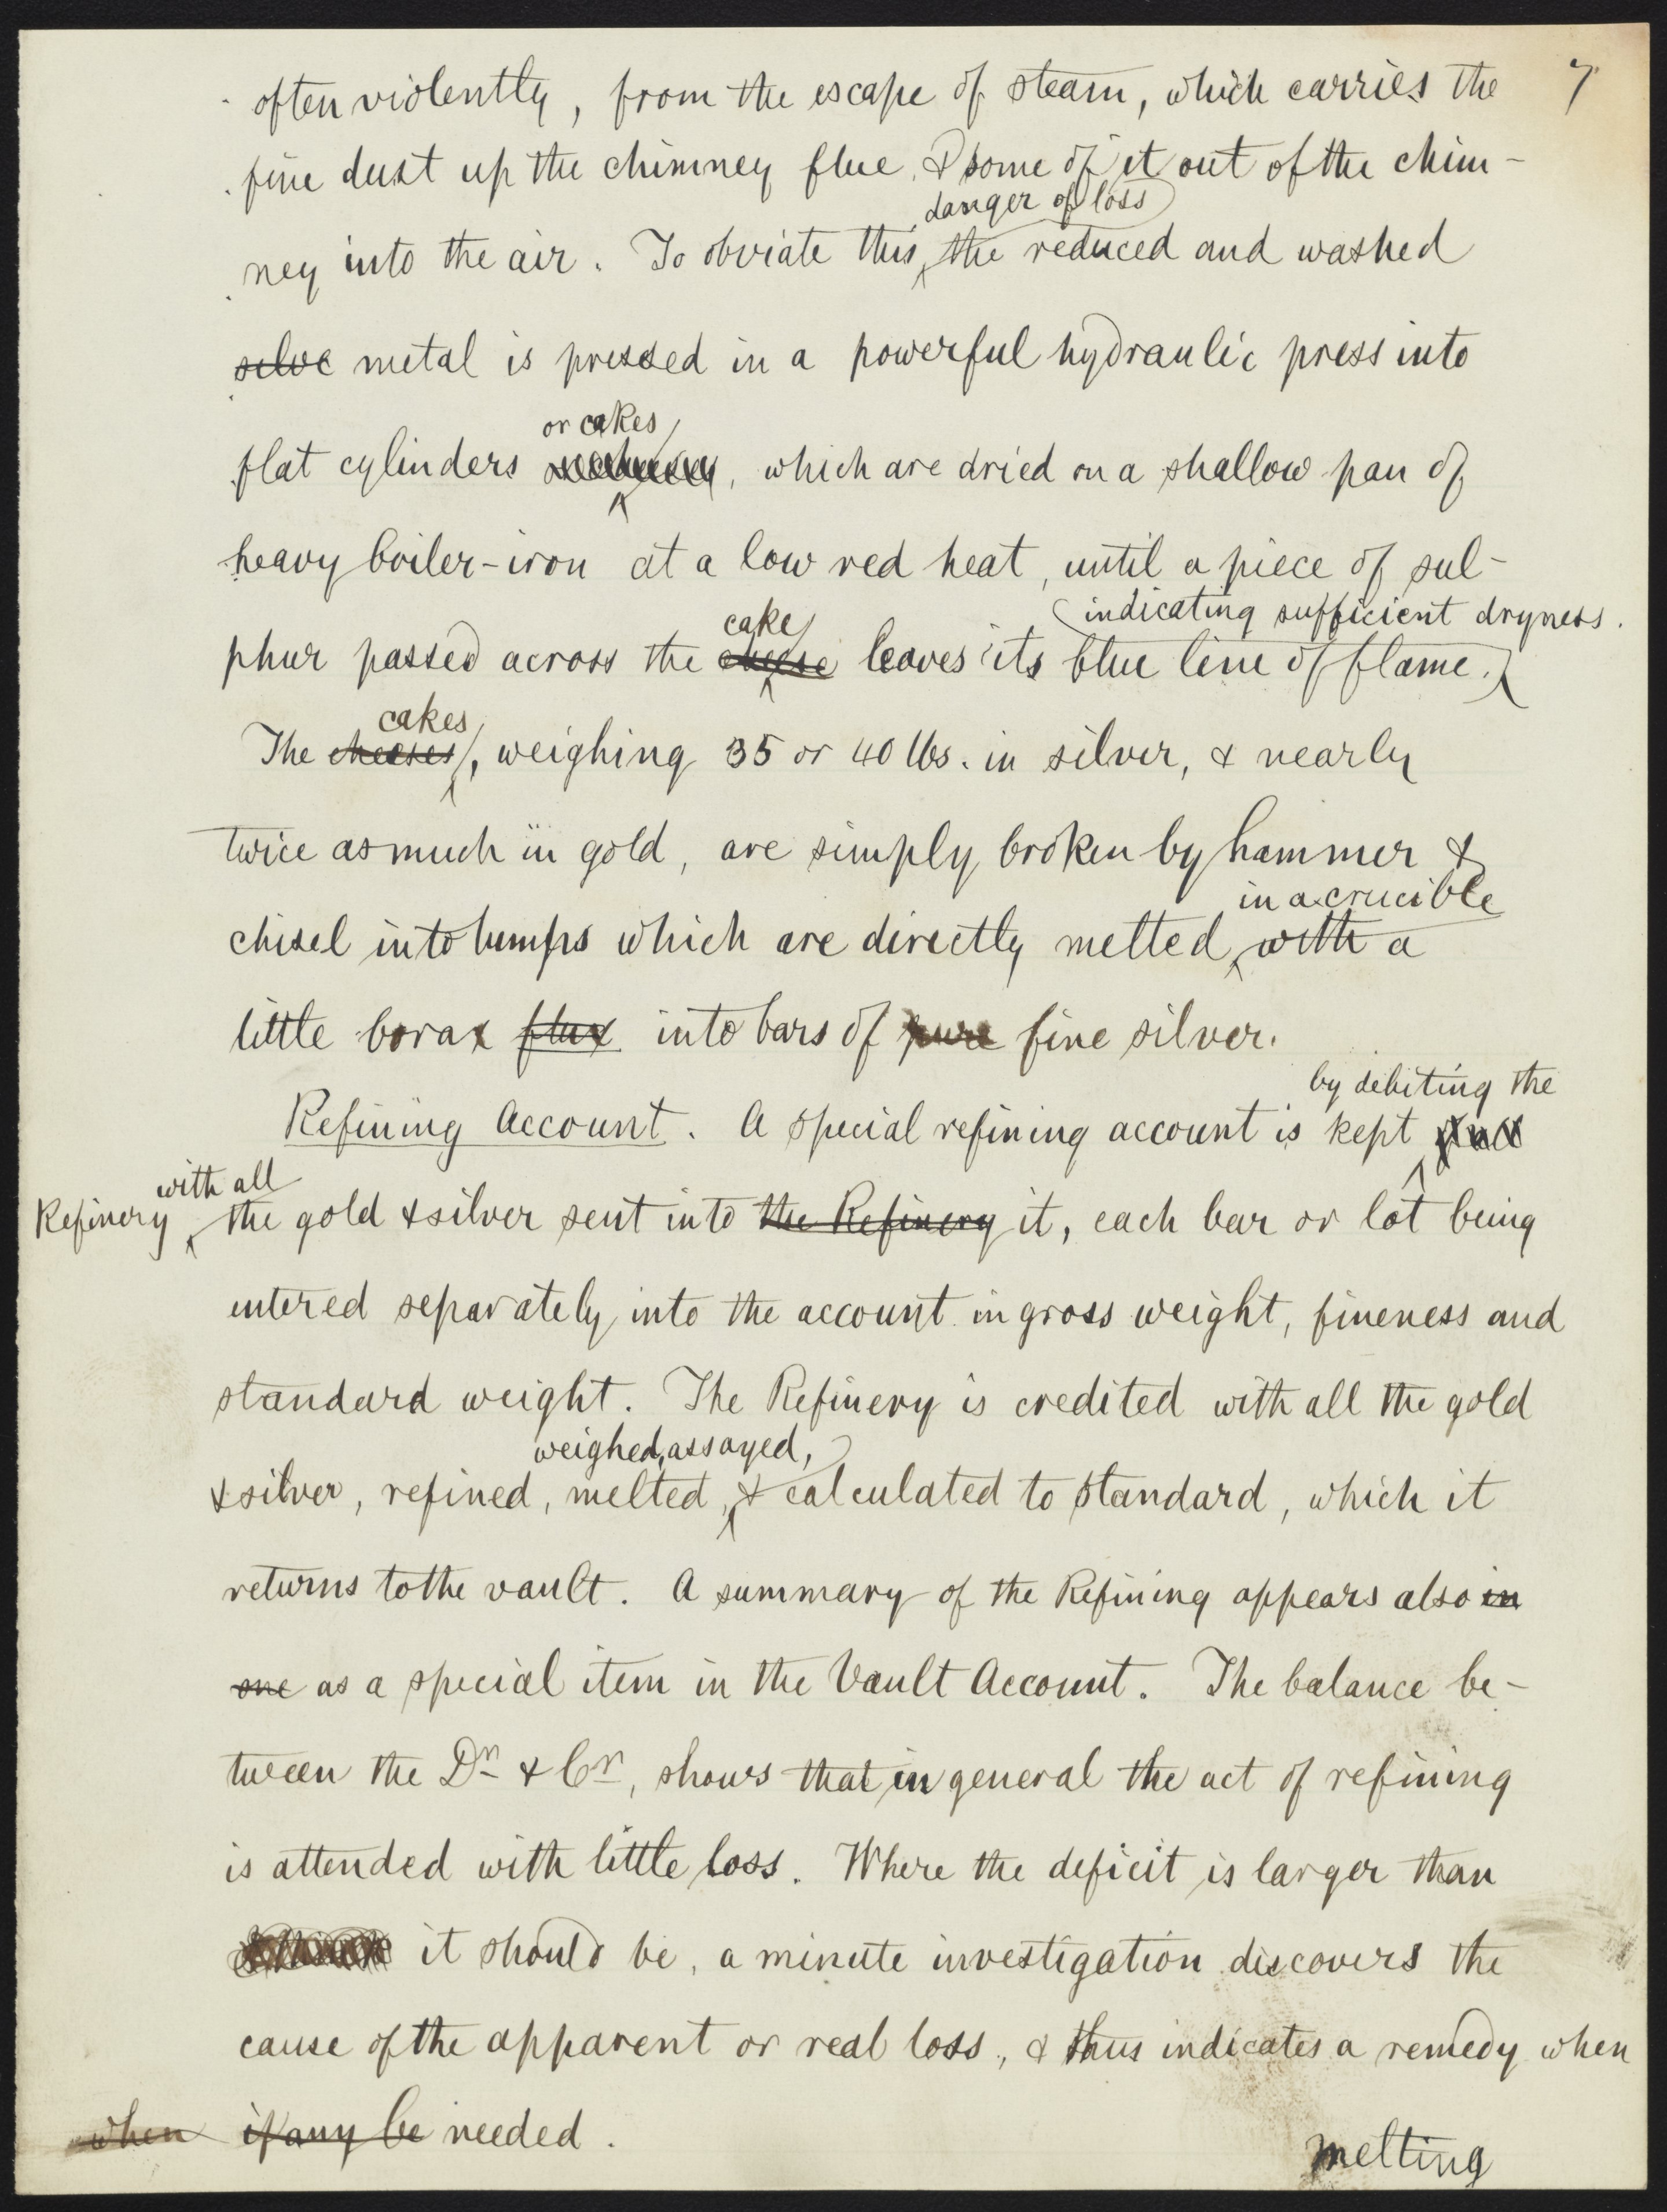 7
often violently, from the escape of steam, which carries the
fine dust up the chimney flue, & some of it out of the chim-
danger of loss
ney into the air. To obviate this, the reduced and washed
silve metal is pressed in a powerful hydraulic press into
or cakes
flat cylinders , which are dried on a shallow pan of
heavy boiler-iron at a low red heat, until a piece of sul-
indicating sufficient dryness.
cake
phur passed across the cheese leaves its blue line of flame.
cakes
The cheeses, weighing 35 or 40 lbs. in silver, & nearly
twice as much in gold, are simply broken by hammer &
in a crucible
chisel into lumps which are directly melted with a
little borax flux into bars of pure fine silver.
by debiting the
Refining Account. A special refining account is kept
with all
Refinery the gold & silver sent into the Refinery it, each bar or lot being
entered separately into the account in gross weight, fineness and
standard weight. The Refinery is credited with all the gold
weighed, assayed,
& silver, refined, melted, & calculated to standard, which it
returns to the vault. A summary of the Refining appears also in
one as a special item in the Vault Account. The balance be-
tween the Dr & Cr, shows that in general the act of refining
is attended with little loss. Where the deficit is larger than
it should be, a minute investigation discovers the
cause of the apparent or real loss, & thus indicates a remedy when
when if any be needed.
melting